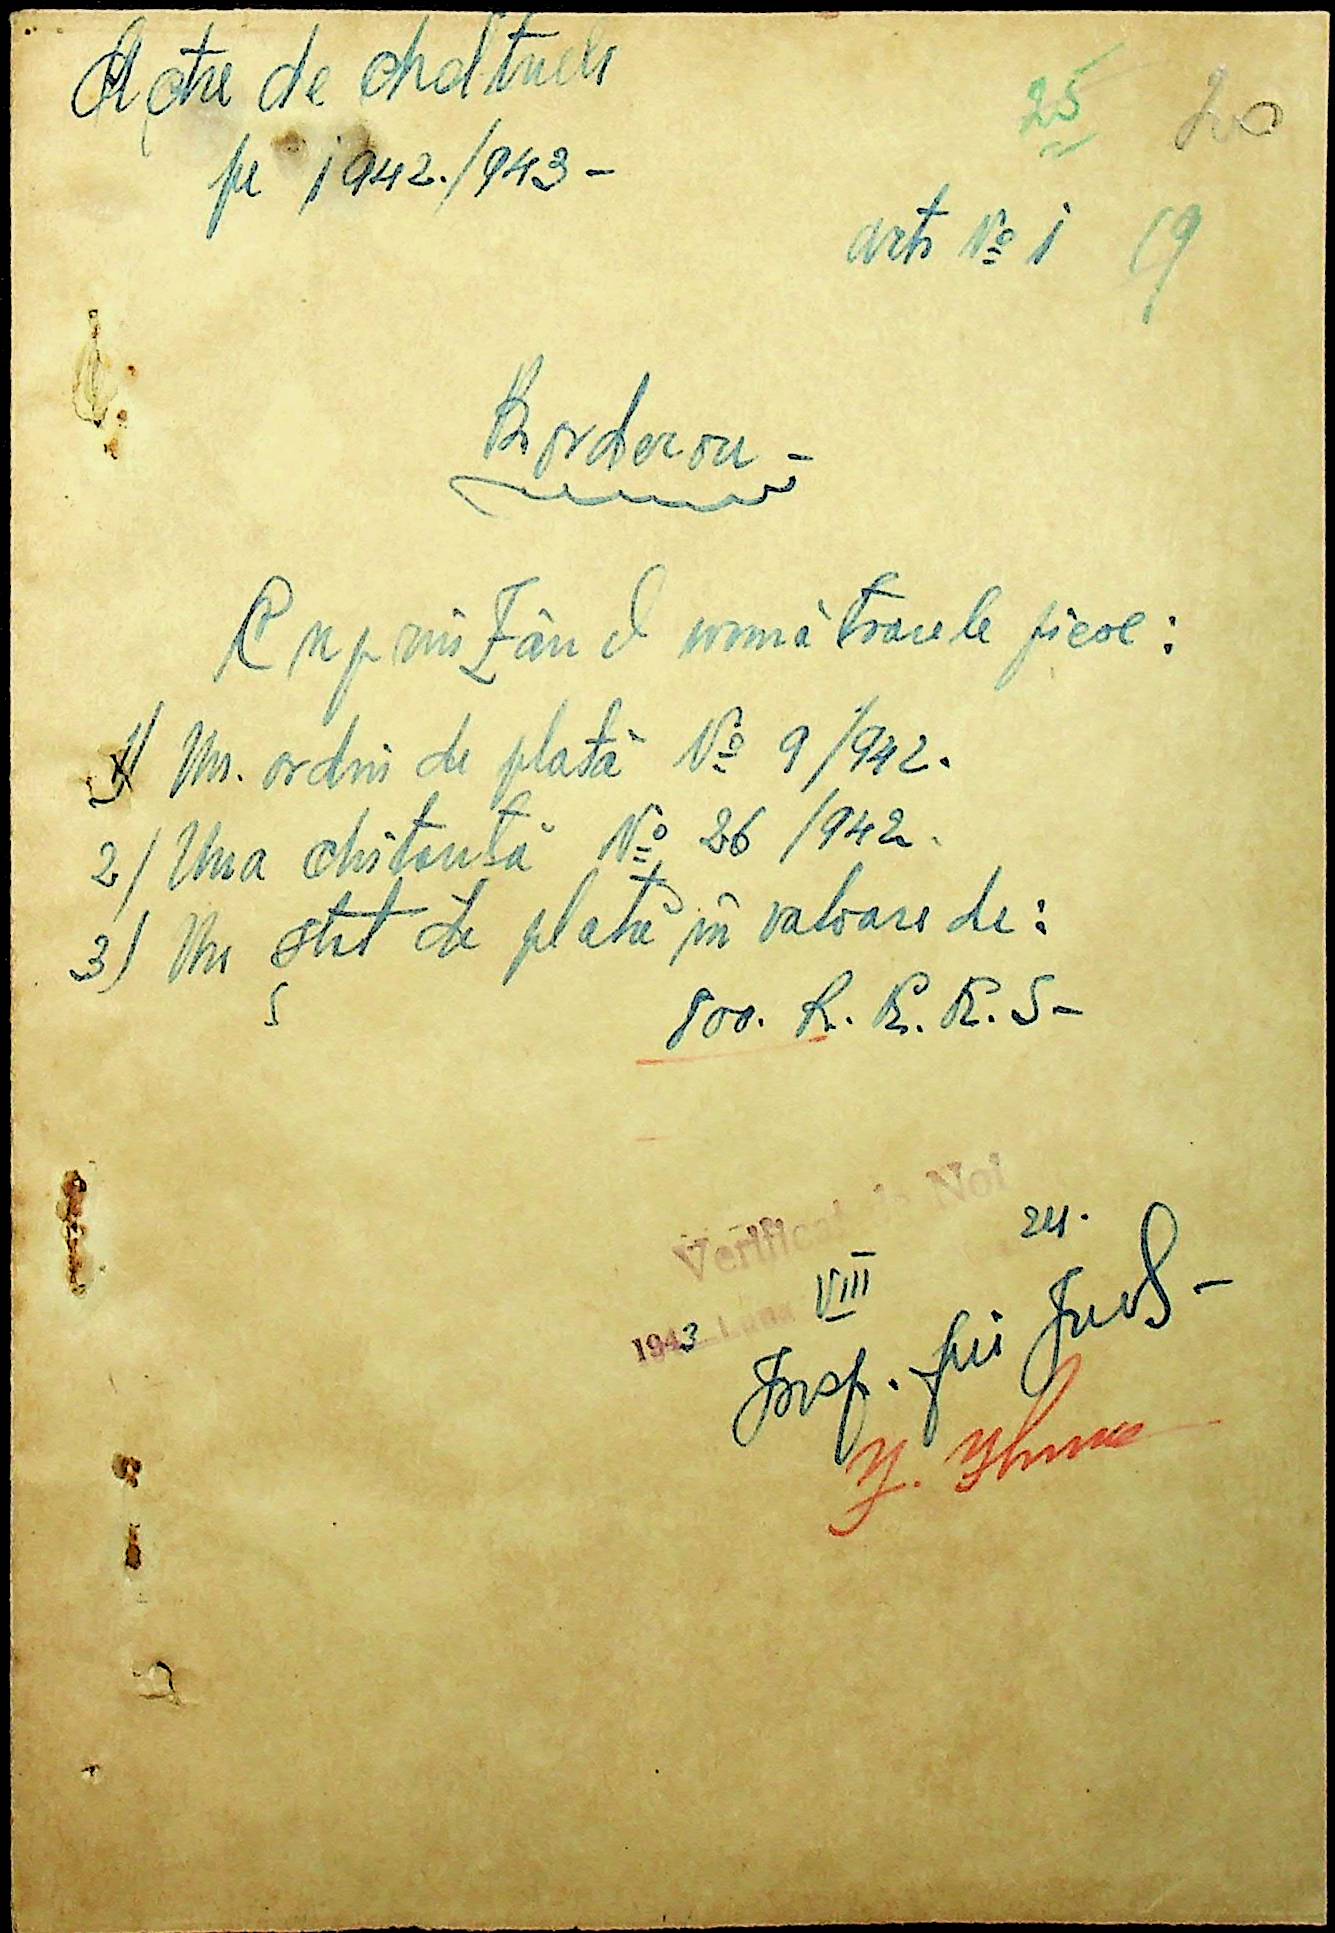 Acte de cheltueli
25 20
pe 1942./943-
acts No 1 19
Borderou-
Cuprinzând următoarele piese:
1/ Un. ordin de plată No 9/942.
2/ Una chitanță No 26/942.
3/ Un stat de plată în valoare de:
800. R.K.K.S-
Verificat de Noi
24.
1943 Luna VIII
Insp. fin Jud-